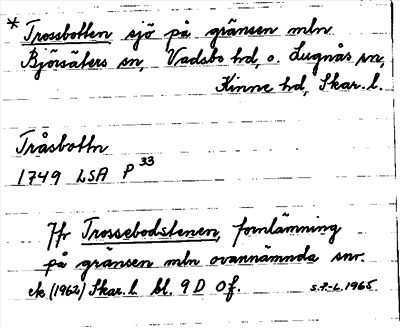 * Trossbotten, sjö på gränsen mln
Björsäters sn, Vadsbo hd, o. Lugnås sn,
Kinne hd, Skar. l.
Tråsbottn
1749 LSA P 33
Jfr Trossebodstenen, fornlämning
på gränsen mln ovannämnda snr.
ek (1962) Skar. l. bl. 9 D 0f.
S.F-L. 1965